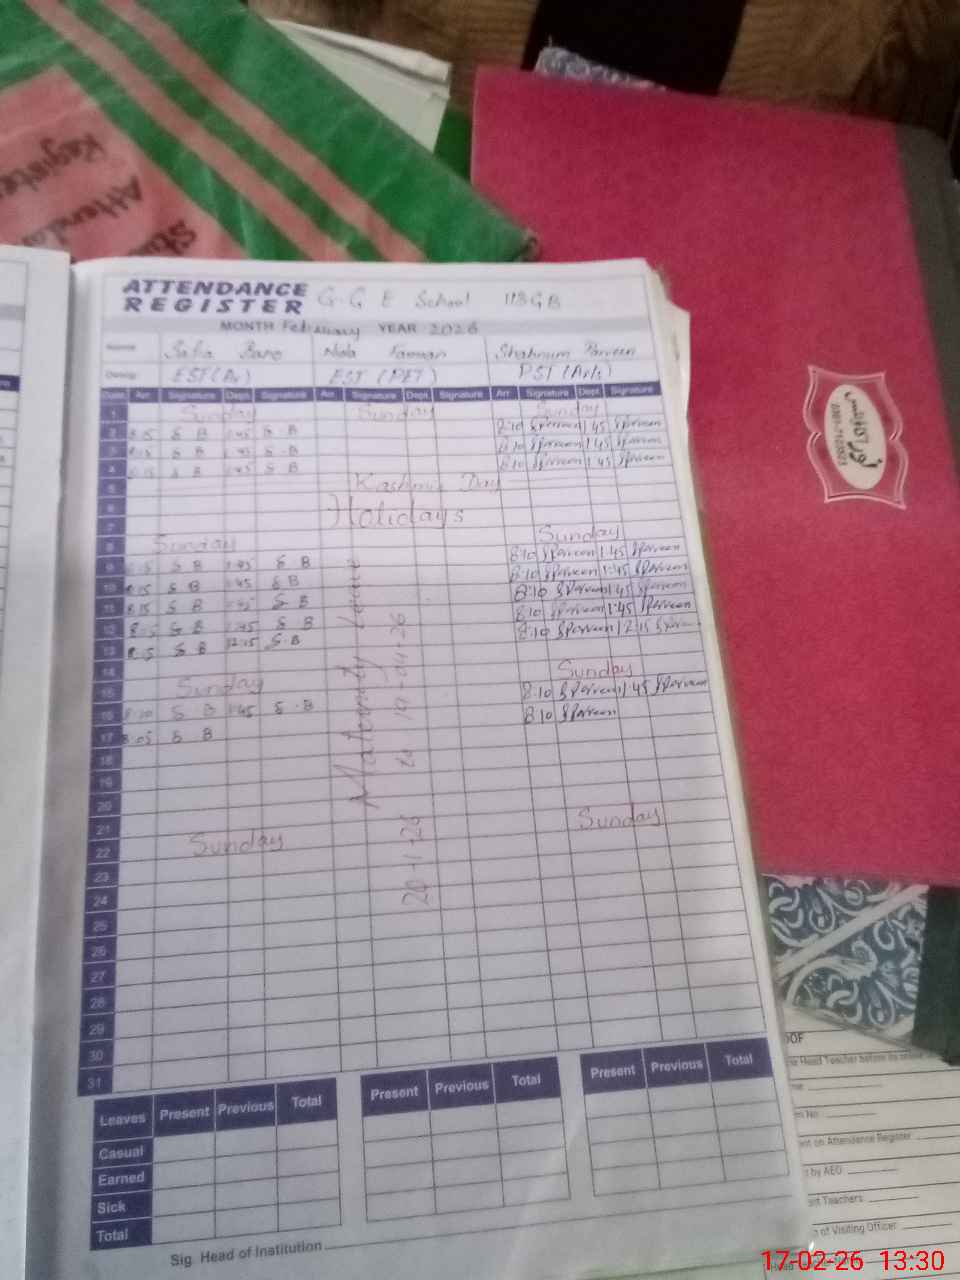 Attendance
Register
ATTENDANCE
REGISTER G.G E School 118GB
MONTH February YEAR 2026
Name Safia Bano Parveen
Desig: EST (Ar) EST (PET) PST (Arts)
Date Arr. Signature Dept. Signature Arr. Signature Dept. Signature Arr. Signature Dept. Signature
1 Sunday Sunday Sunday
2 8:15 S B 1:45 S B 8:10 SParveen 1:45 SParveen
3 8:15 S B 1:45 S.B 8:10 SParveen 1:45 SParveen
4 8:15 S B 1:45 S B 8:10 SParveen 1:45 SParveen
5 Kashmir Day
6 Holidays
7
8 Sunday Sunday
9 8:15 S B 1:45 S B 8:10 SParveen 1:45 SParveen
10 8:15 S B 1:45 S B 8:10 SParveen 1:45 SParveen
11 8:15 S B 1:45 S B 8:10 SParveen 1:45 SParveen
12 8:15 S B 1:45 S B 8:10 SParveen 1:45 SParveen
13 8:15 S B 12:15 S.B 8:10 SParveen 12:15 SParveen
14
15 Sunday Sunday
16 8:10 S B 1:45 S.B 8:10 SParveen 1:45 SParveen
17 8:05 S B 8:10 SParveen
18
19
20
21
22 Sunday Sunday
23
24
25
26
27
28
29
30
31
Maternity Leave
20-1-26 to 19-04-26
Leaves Present Previous Total Present Previous Total Present Previous Total
Casual
Earned
Sick
Total
Sig. Head of Institution
Head Teacher before its
on Attendance Register
by AEO
Teachers
of Visiting Officer
17-02-26 13:30